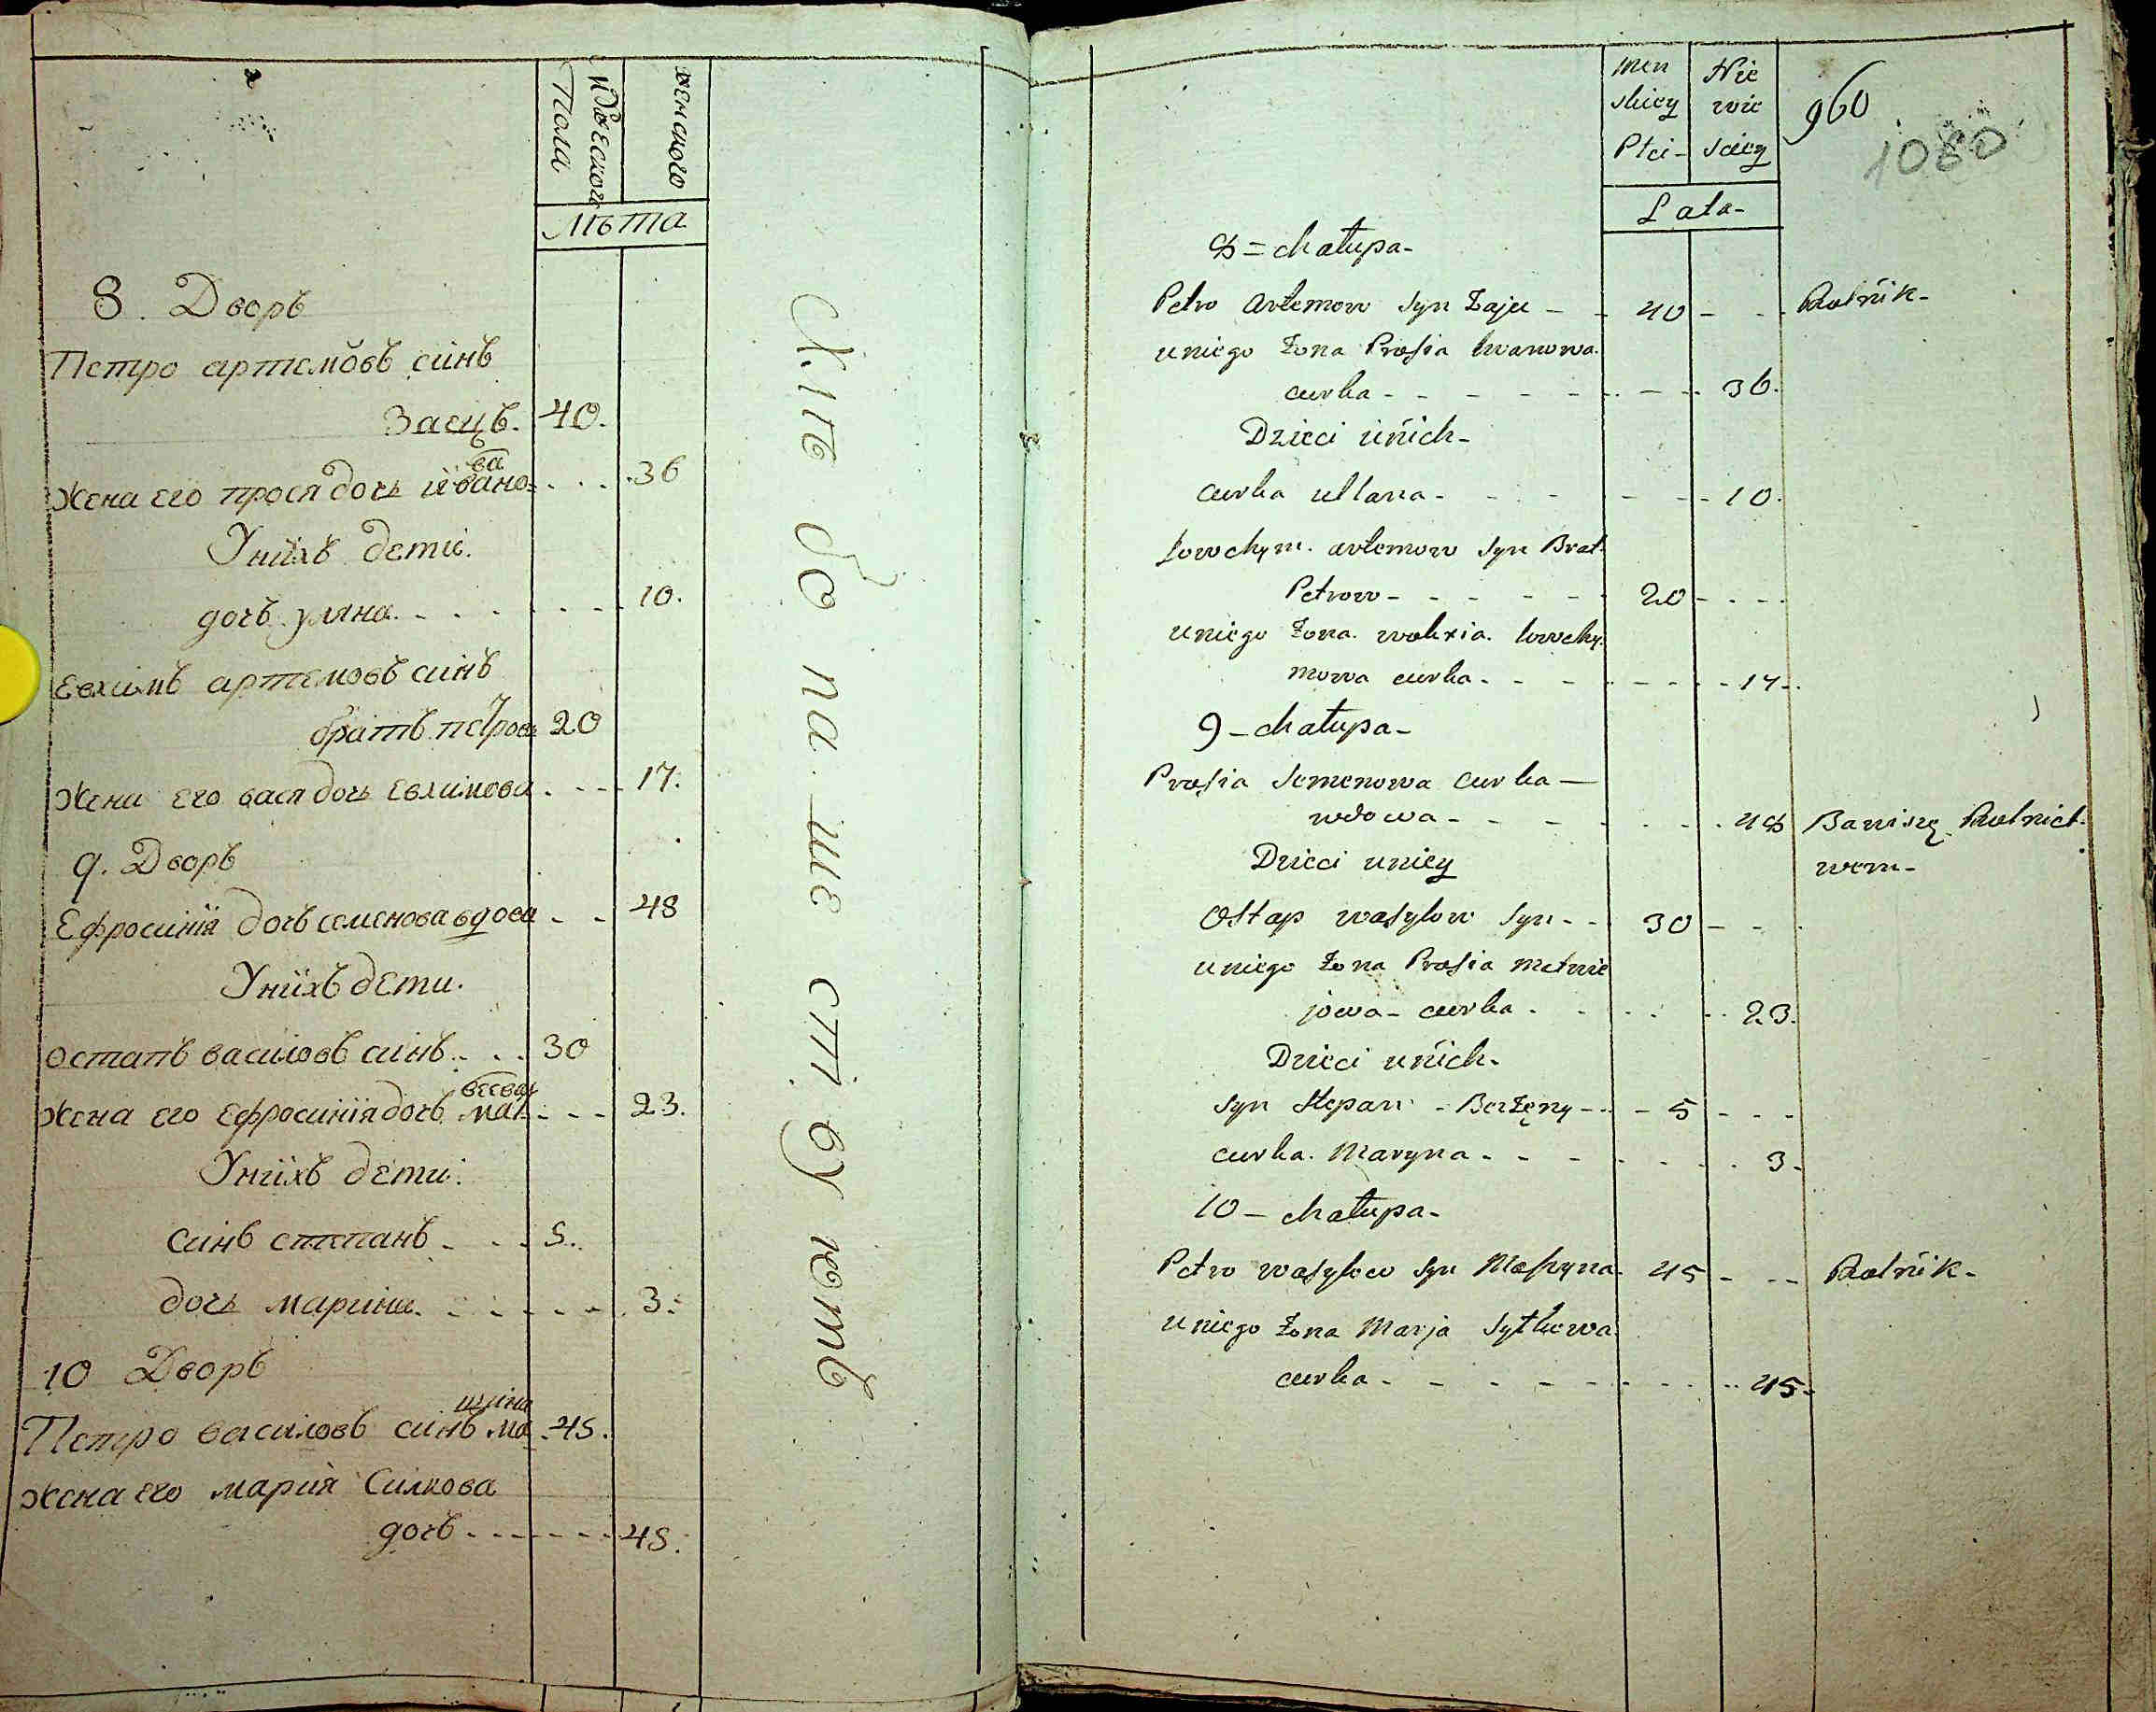 Мужеского
Пола
женского
Лѣта
8. Дворъ
Петро артемовъ синъ
Заецъ. 40.
жена его прося дочь ивано ва 36
Унихъ дети.
дочъ уляна. 10.
Евхимъ артемовъ синъ
братъ петровъ 20
жена его вася дочь Евхимова 17.
9. Дворъ
Ефросинiя дочъ семенова вдова 48
Унихъ дети.
остапъ василовъ синъ 30
жена его Ефросинiя дочъ мат веева 23.
Унихъ дети.
синъ степанъ 5.
дочь марина. 3.
10 Дворъ
Петро василовъ синъ ма шина 45.
жена его мария Силкова
дочъ 45.
Men
skiey
Płci
Nie
wie
sciey
Lata
960
1080
8 = chałupa
Petro Artemow Syn Zając 40 Rolnik
uniego Żona Prosia Iwanowa
curka 36.
Dzieci unich
curka ullana 10.
Jowchym. artemow Syn Brat
Petrow 20
uniego Żona Iowchy
mowa curka 17
9 - chałupa
Prosia Semenowa curka
wdowa 48 Bawi się Rolnict
wem
Dzieci uniey
Ostap wasylow Syn 30
uniego Żona Prosia Matwie
jowa curka 23.
Dzieci unich.
Syn Stepan 5
curka Maryna 3
10 - chałupa
Petro wasylow Syn 45 Rolnik
uniego Żona Marja Sytkowa
curka 45